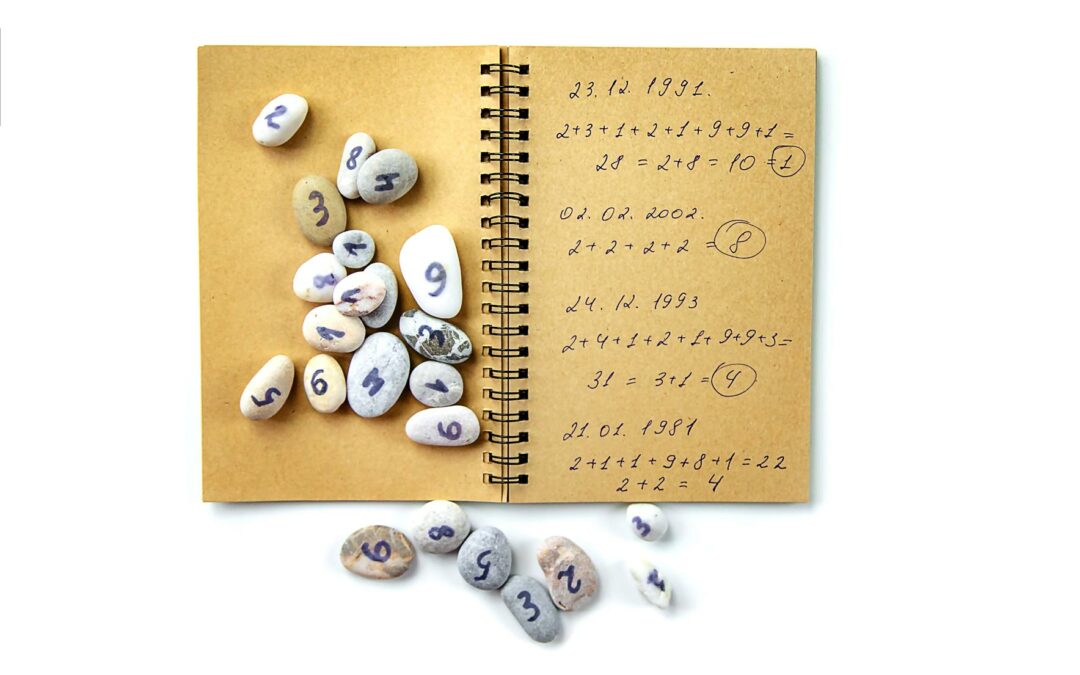 23.12.1991.
2+3+1+2+1+9+9+1=
28 = 2+8 = 10 = 1
02.02.2002.
2+2+2+2 = 8
24.12.1993
2+4+1+2+1+9+9+3=
31 = 3+1 = 4
21.01.1981
2+1+1+9+8+1=22
2+2 = 4
2
8
4
3
1
8
1
1
3
4
1
5
8
5
3
2
3